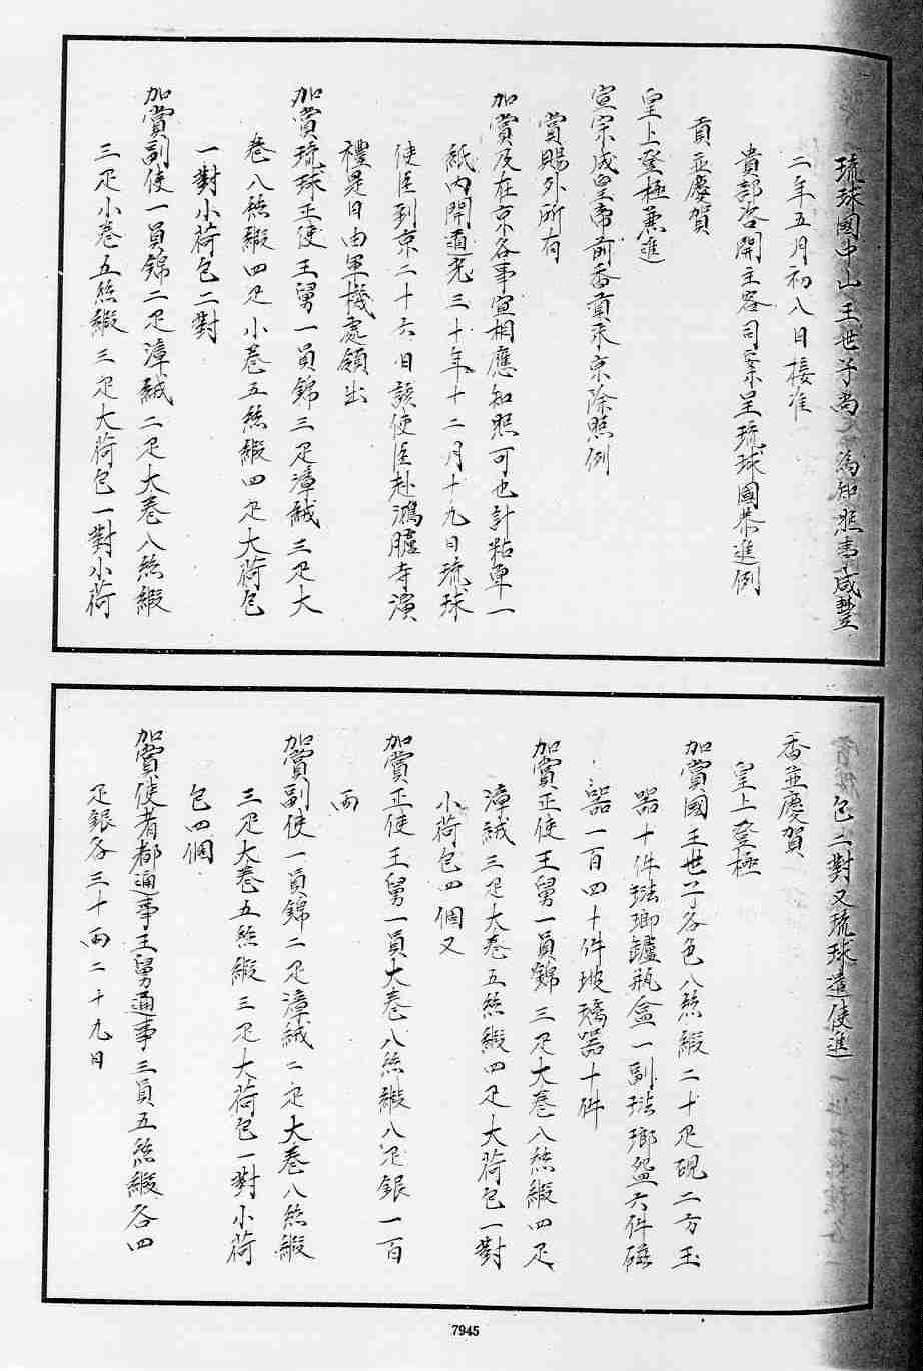 琉球國中山王世子尚 為知照事咸豐
二年五月初八日接准
貴部咨開主客司案呈琉球國恭進例
貢並慶賀
皇上登極兼進
宣宗成皇帝前香貢來京除照例
賞賜外所有
加賞及在京各事宜相應知照可也計粘單一
紙內開道光三十年十二月十九日琉球
使臣到京二十六日該使臣赴鴻臚寺演
禮是日由軍機處領出
加賞琉球正使王舅一員錦三疋漳絨三疋大
卷八絲緞四疋小卷五絲緞四疋大荷包
一對小荷包二對
加賞副使一員錦二疋漳絨二疋大卷八絲緞
三疋小卷五絲緞三疋大荷包一對小荷
包二對又琉球遣使進
香並慶賀
皇上登極
加賞國王世子各色八絲緞二十疋硯二方玉
器十件琺瑯罏瓶盒一副琺瑯盤六件磁
器一百四十件玻璃器十件
加賞正使王舅一員錦三疋大卷八絲緞四疋
漳絨三疋大卷五絲緞四疋大荷包一對
小荷包四個又
加賞正使王舅一員大卷八絲緞八疋銀一百
兩
加賞副使一員錦二疋漳絨二疋大卷八絲緞
三疋大卷五絲緞三疋大荷包一對小荷
包四個
加賞使者都通事王舅通事三員五絲緞各四
疋銀各三十兩二十九日
7945